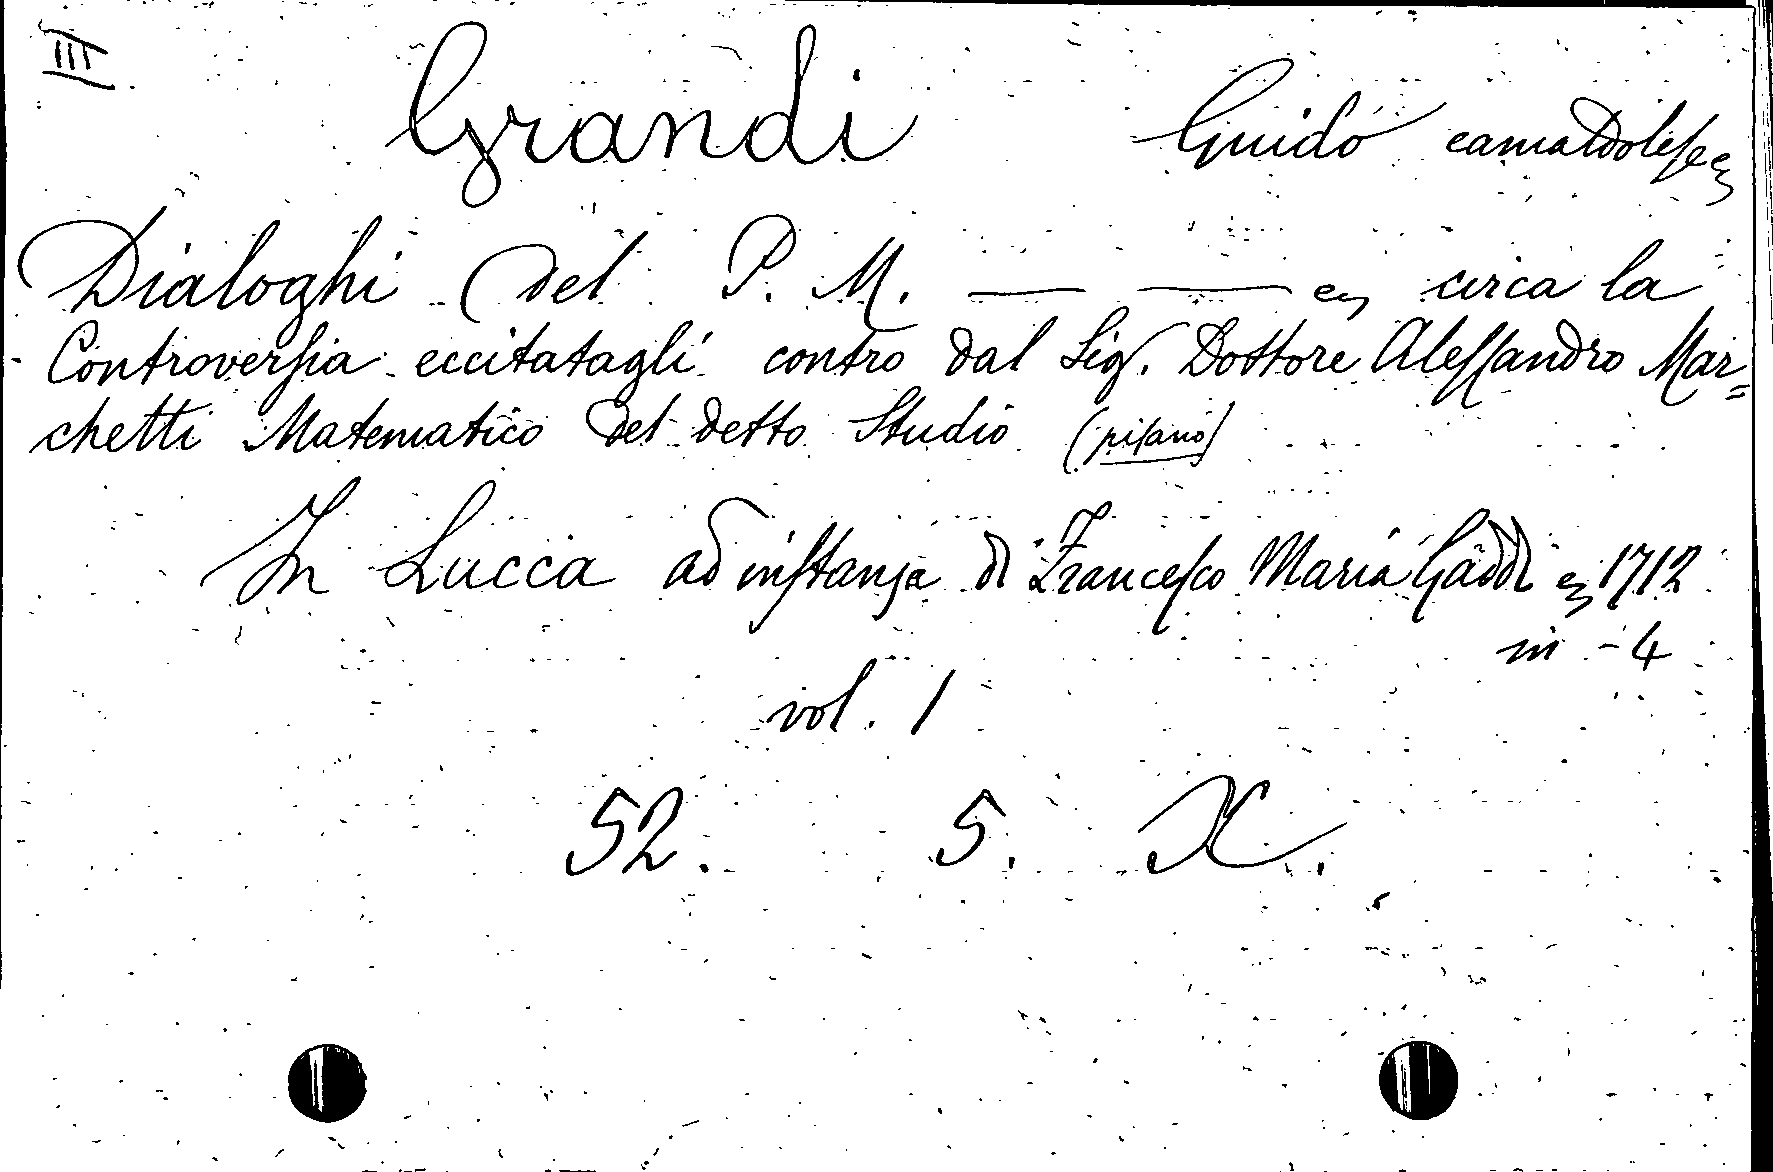 III
Grandi Guido camaldolese
Dialoghi del P. M. — — circa la
Controverſia eccitatagli contro dal Sig. Dottore Aleſſandro Mar=
chetti Matematico del detto Studio (piſano)
In Lucca ad inſtanza di Franceſco Maria Gaddi 1712
in - 4
vol. 1
52. 5. X.